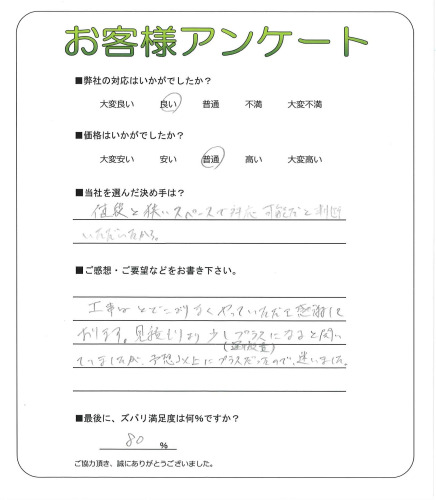 お客様アンケート
■弊社の対応はいかがでしたか？
大変良い 良い 普通 不満 大変不満
■価格はいかがでしたか？
大変安い 安い 普通 高い 大変高い
■当社を選んだ決め手は？
値段と狭いスペースで対応可能だと判断
いただいたから。
■ご感想・ご要望などをお書き下さい。
工事はとどこおりなくやっていただて感謝して
おります。見積もりより少しプラスになると伺っ
ていましたが、予想以上にプラスだったので、迷いました。
■最後に、ズバリ満足度は何%ですか？
80 %
ご協力頂き、誠にありがとうございました。